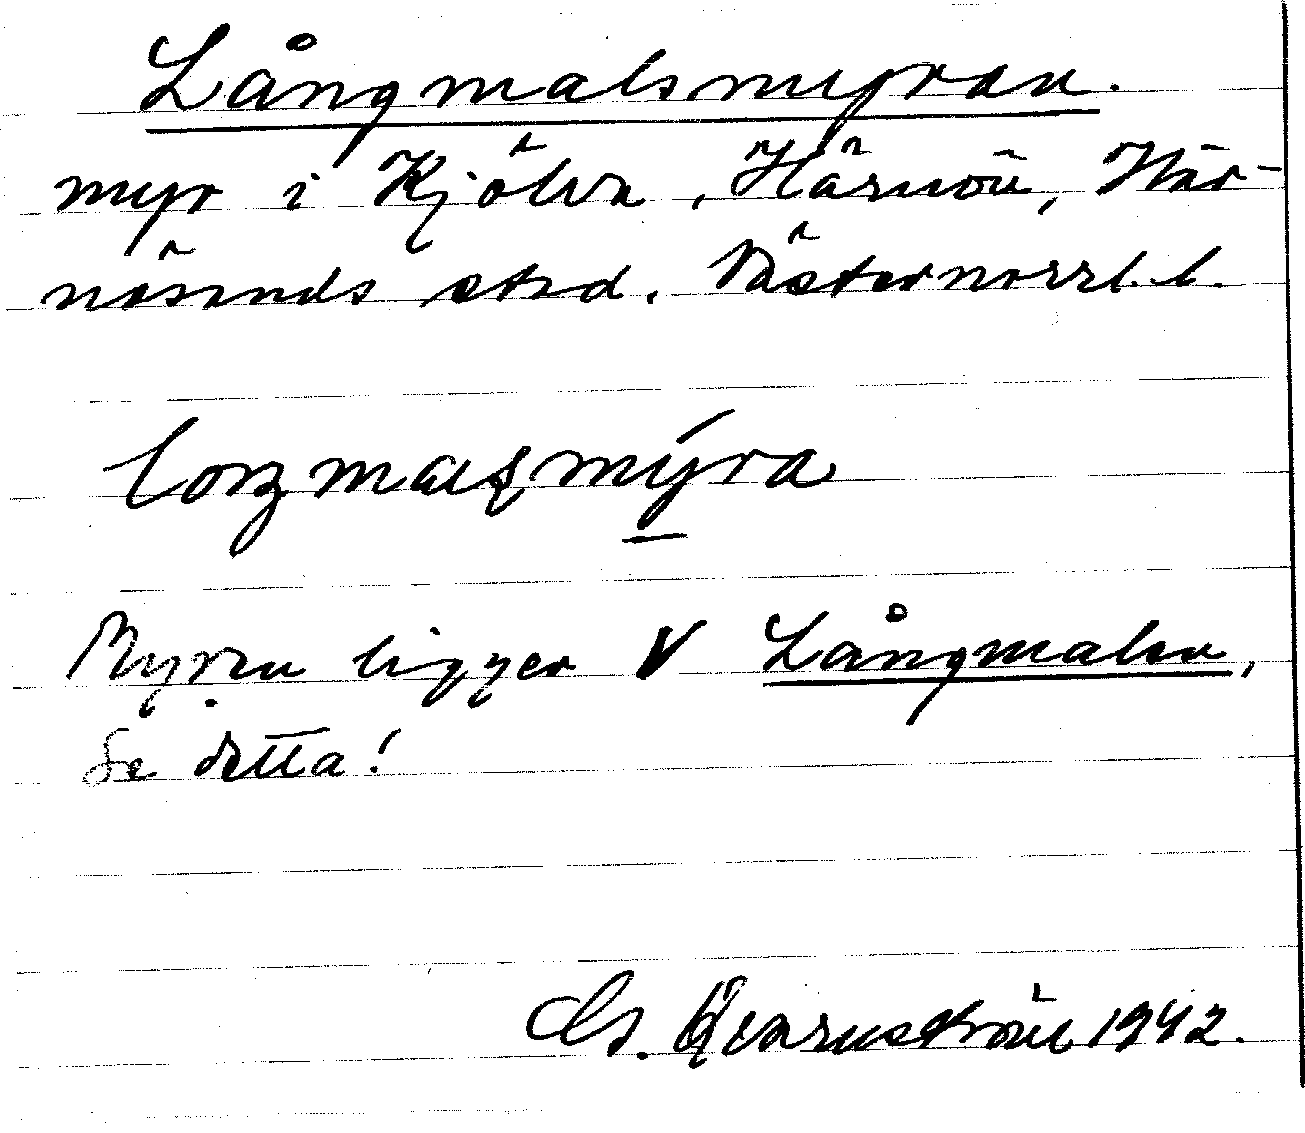 Långmalsmyran.
myr i Kjölva, Härnön, Här-
nösands stad. Västernorrl. l.
loŋmaḷsmýra
Myren ligger V Långmalen,
Se detta!
Gs. Qvarnström 1942.